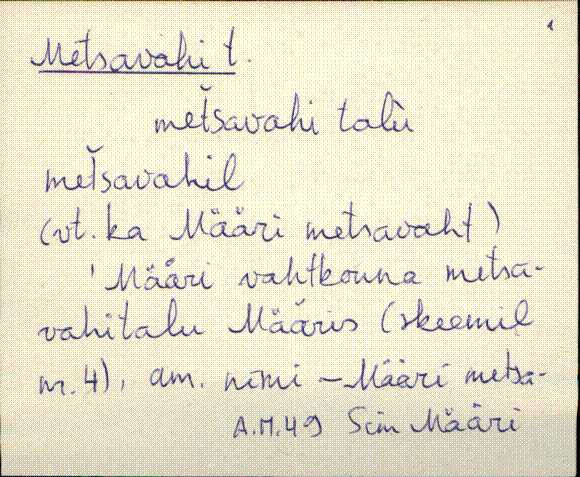 Metsavahi t.
met̆savahi talù
met̆savahil
(vt. ka Määri metsavaht)
'Määri vahtkonna metsa-
vahitalu Määris (skeemil
nr. 4), am. nimi – Määri metsa-
A.M.49 Sim Määri